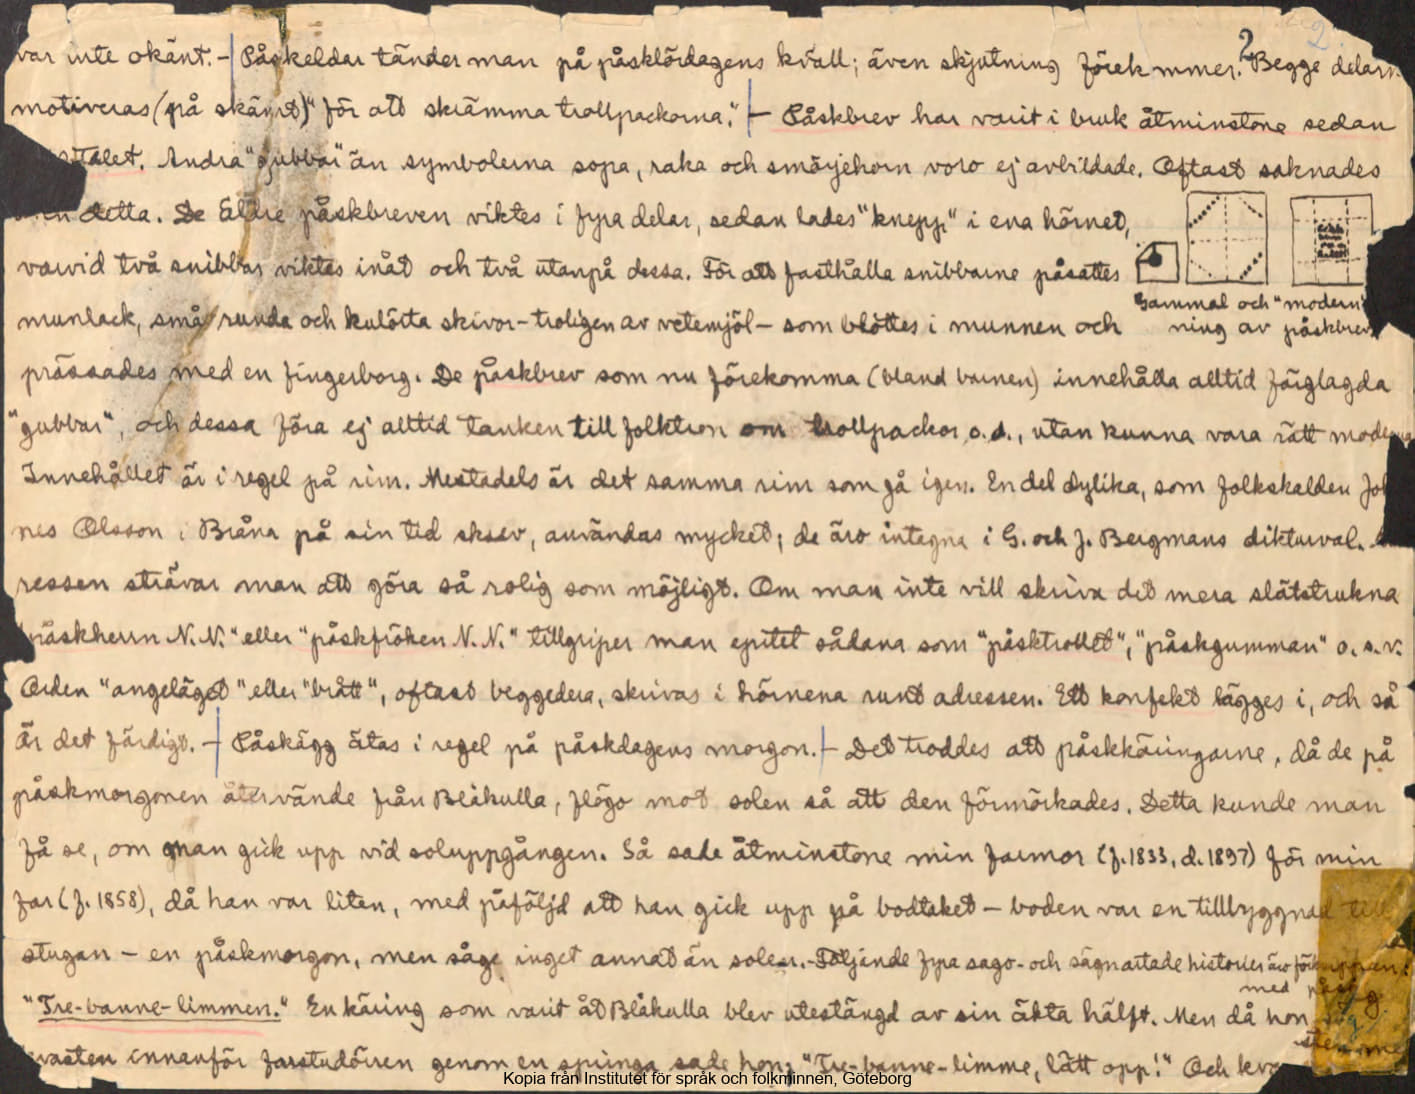 2
2
var inte okänt. - Påskeldar tänder man på påsklördagens kväll; även skjutning förek mmer. Begge delarn
motiveras (på skämt) "för att skrämma trollpackorna." - Påskbrev har varit i bruk åtminstone sedan
talet. Andra "gubbar" än symbolerna sopa, raka och smörjehorn voro ej avbildade. Oftast saknades
detta. De äldre påskbreven viktes i fyra delar, sedan lades "knepp" i ena hörnet,
varvid två snibbar viktes inåt och två utanpå dessa. För att fasthålla snibbarne påsattes
Gammal och "modern"
munlack, små runda och kulörta skivor - troligen av vetemjöl - som blöttes i munnen och
ning av påskbrev
prässades med en fingerborg. De påskbrev som nu förekomma (bland barnen) innehålla alltid färglagda
"gubbar", och dessa föra ej alltid tanken till folktron om trollpackor o.d., utan kunna vara rätt moderna
Innehållet är i regel på rim. Mestadels är det samma rim som gå igen. En del dylika, som folkskalden Joh
nes Olsson i Bråna på sin tid skrev, användas mycket; de äro intagna i G. och J. Bergmans dikturval.
ressen strävar man att göra så rolig som möjligt. Om man inte vill skriva det mera slätstrukna
påskherrn N.N." eller "påskfröken N.N." tillgriper man epitet sådana som "påsktrollet", "påskgumman" o.s.v.
Orden "angeläget" eller "brått", oftast beggedera, skrivas i hörnena runt adressen. Ett konfekt lägges i, och så
är det färdigt. - Påskägg ätas i regel på påskdagens morgon. - Det troddes att påskkäringarne, då de på
påskmorgonen återvände från Blåkulla, flögo mot solen så att den förmörkades. Detta kunde man
få se, om man gick upp vid soluppgången. Så sade åtminstone min farmor (f. 1833, d. 1897) för min
far (f. 1858), då han var liten, med påföljd att han gick upp på bodtaket - boden var en tillbyggnad till
stugan - en påskmorgon, men såge inget annat än solen. - Följande fyra sago- och sägnartade historier äro förknippan
med påsk
"Tre-banne-limmen." En käring som varit åt Blåkulla blev utestängd av sin äkta hälft. Men då hon såg
kvasten innanför farstudörren genom en springa sade hon: "Tre-banne-limme, lätt opp!" Och kva
Kopia från Institutet för språk och folkminnen, Göteborg